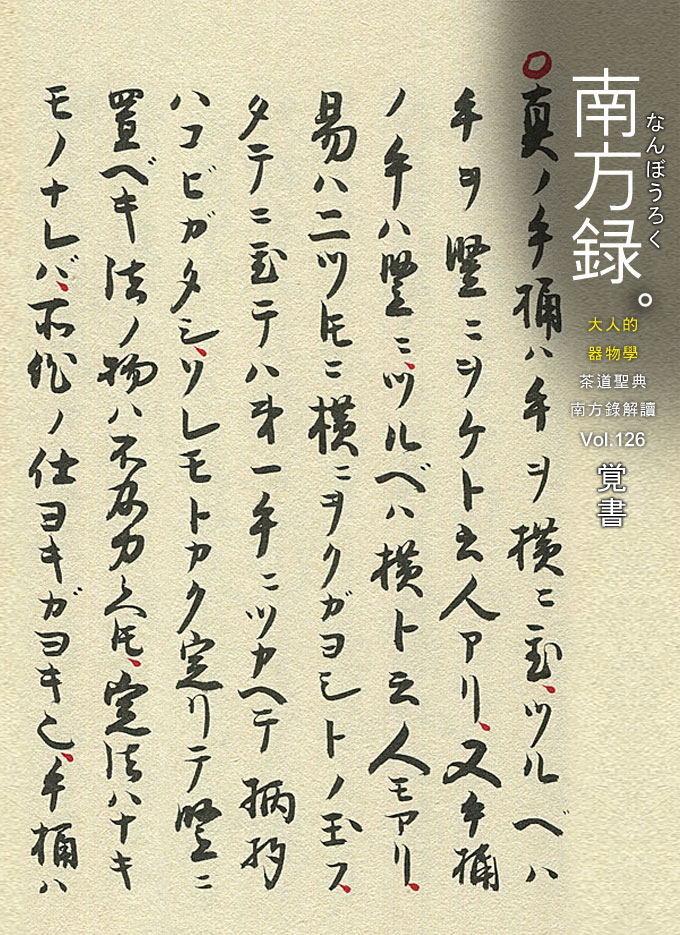 南方録。
なんぼうろく
大人的
器物學
茶道聖典
南方錄解讀
Vol.126
覚書
○真ノ手桶ハ手ヲ横ニ置、ツルベハ
手ヲ竪ニヲケト云人アリ、又手桶
ノ手ハ竪ニ、ツルベハ横ト云人モアリ、
易ハ二ツ𪜈ニ横ニヲクガヨシトノ玉フ、
タテニ置テハ第一手ニツカヘテ柄杓
ハコビガタシ、ソレモトカク定リテ竪ニ
置ベキ法ノ物ハ不及力候𪜈、定法ハナキ
モノナレバ、所作ノ仕ヨキガヨキ也、手桶ハ